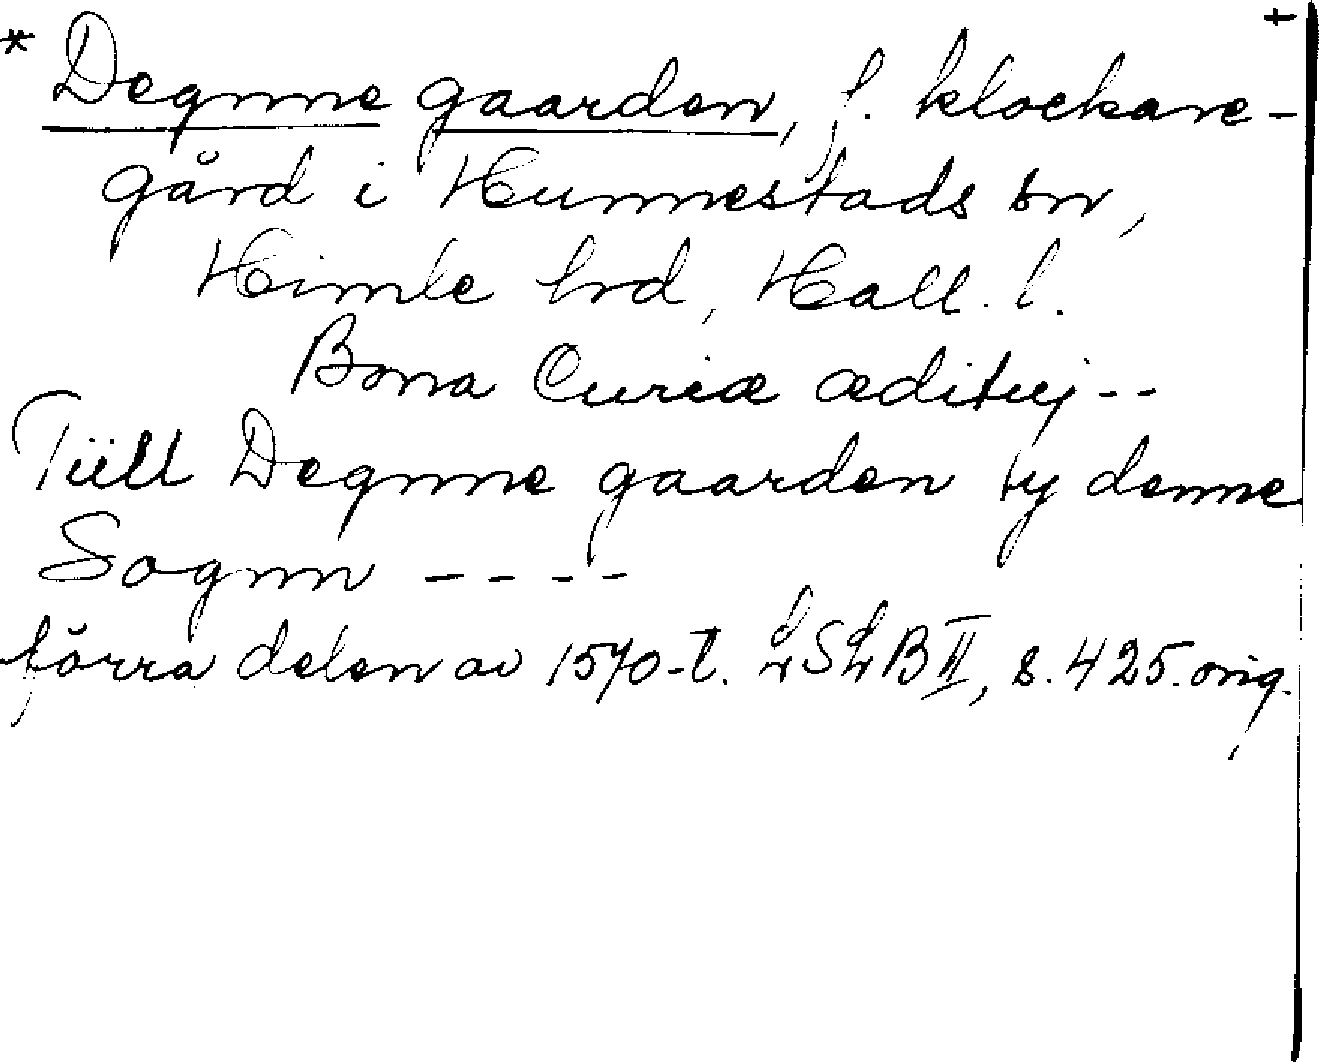 * Degnne gaarden, f. klockare- +
gård i Hunnestads sn,
Himle hrd, Hall. l.
Bona Curiæ ædituj --
Tiill Degnne gaarden ty denne
Sognn ----
förra delen av 1570-t. LSLB II, s. 425. orig.